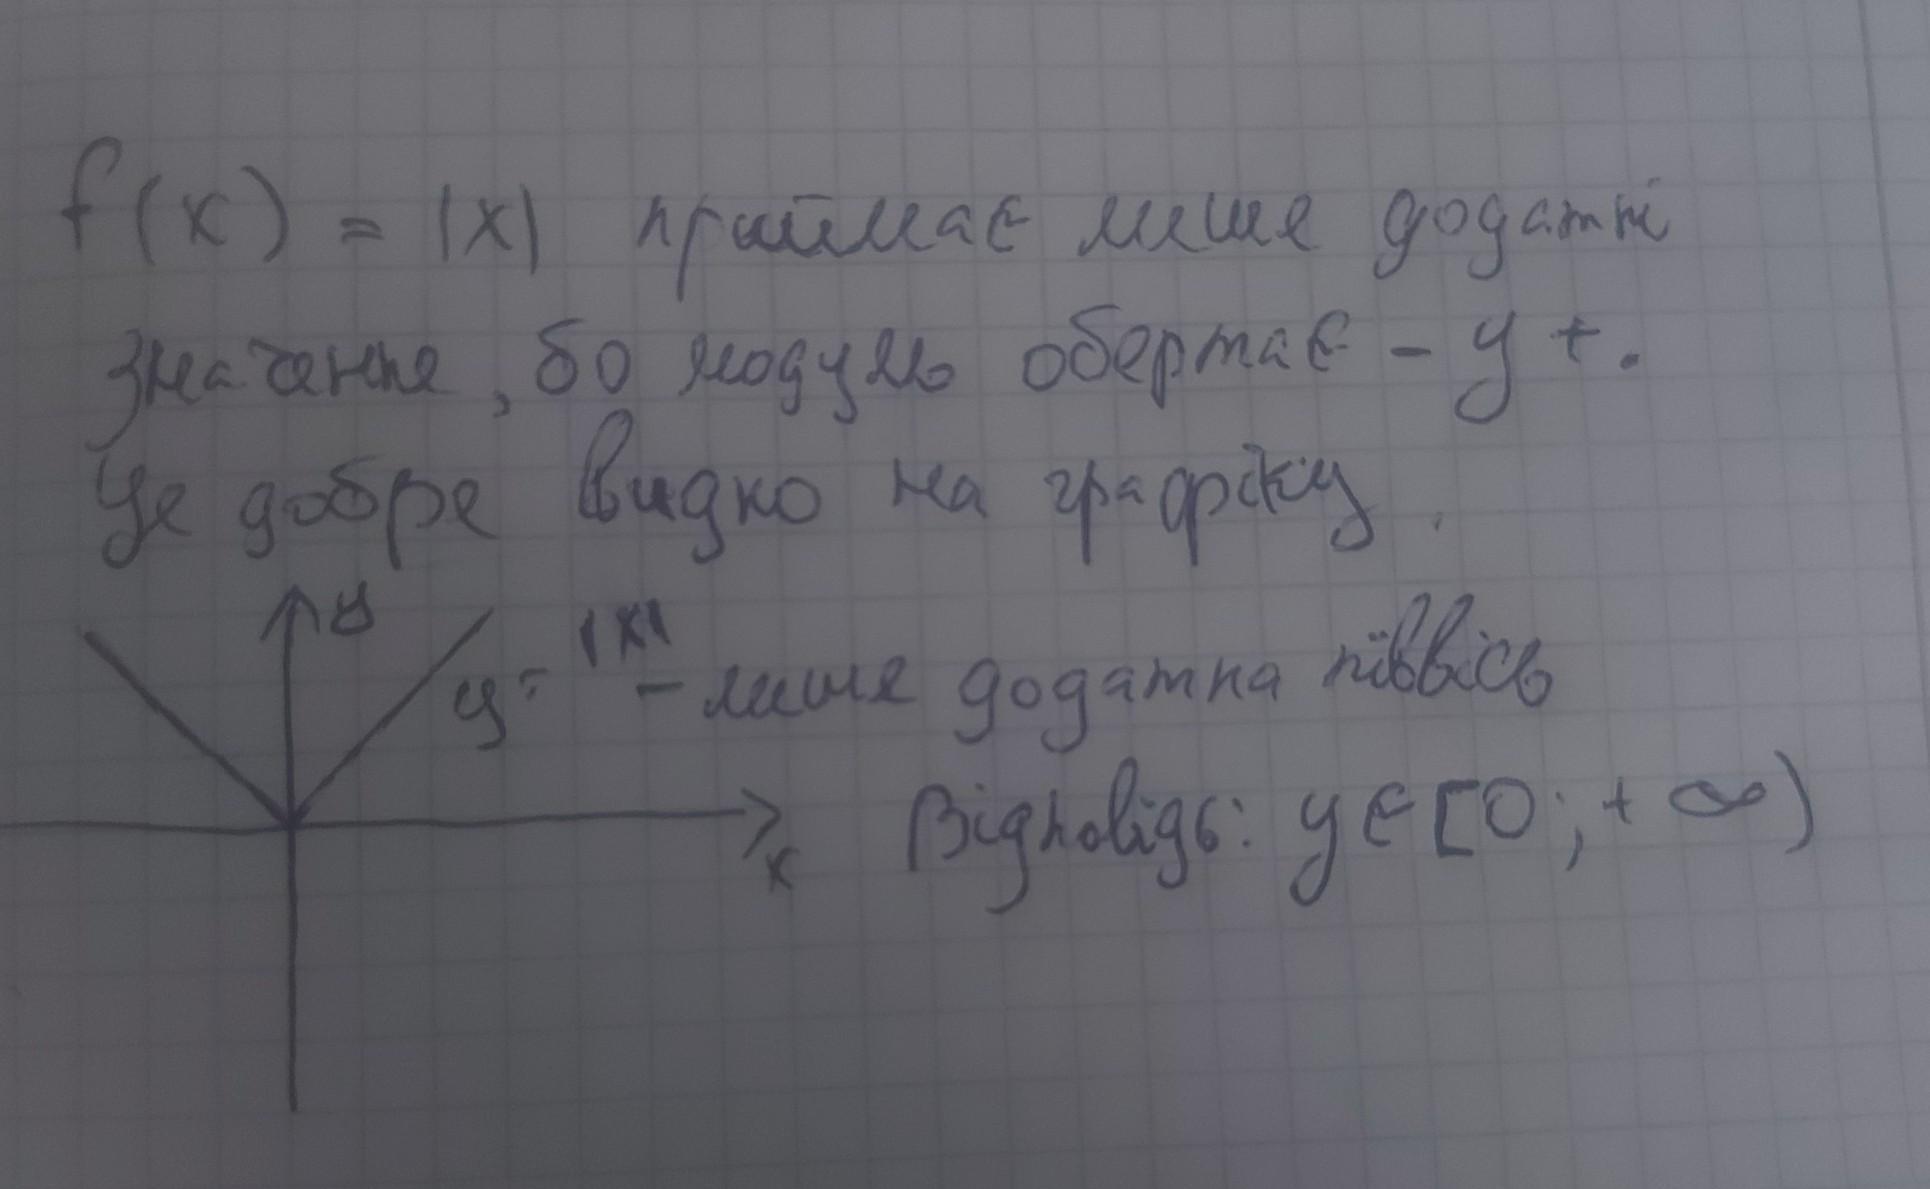 f(x) = |x| приймає лише додатні
значення, бо модуль обертає - у +.
Це добре видно на графіку.
y
y = |x| - лише додатна піввісь
x
Відповідь: y ∈ [0; + ∞)